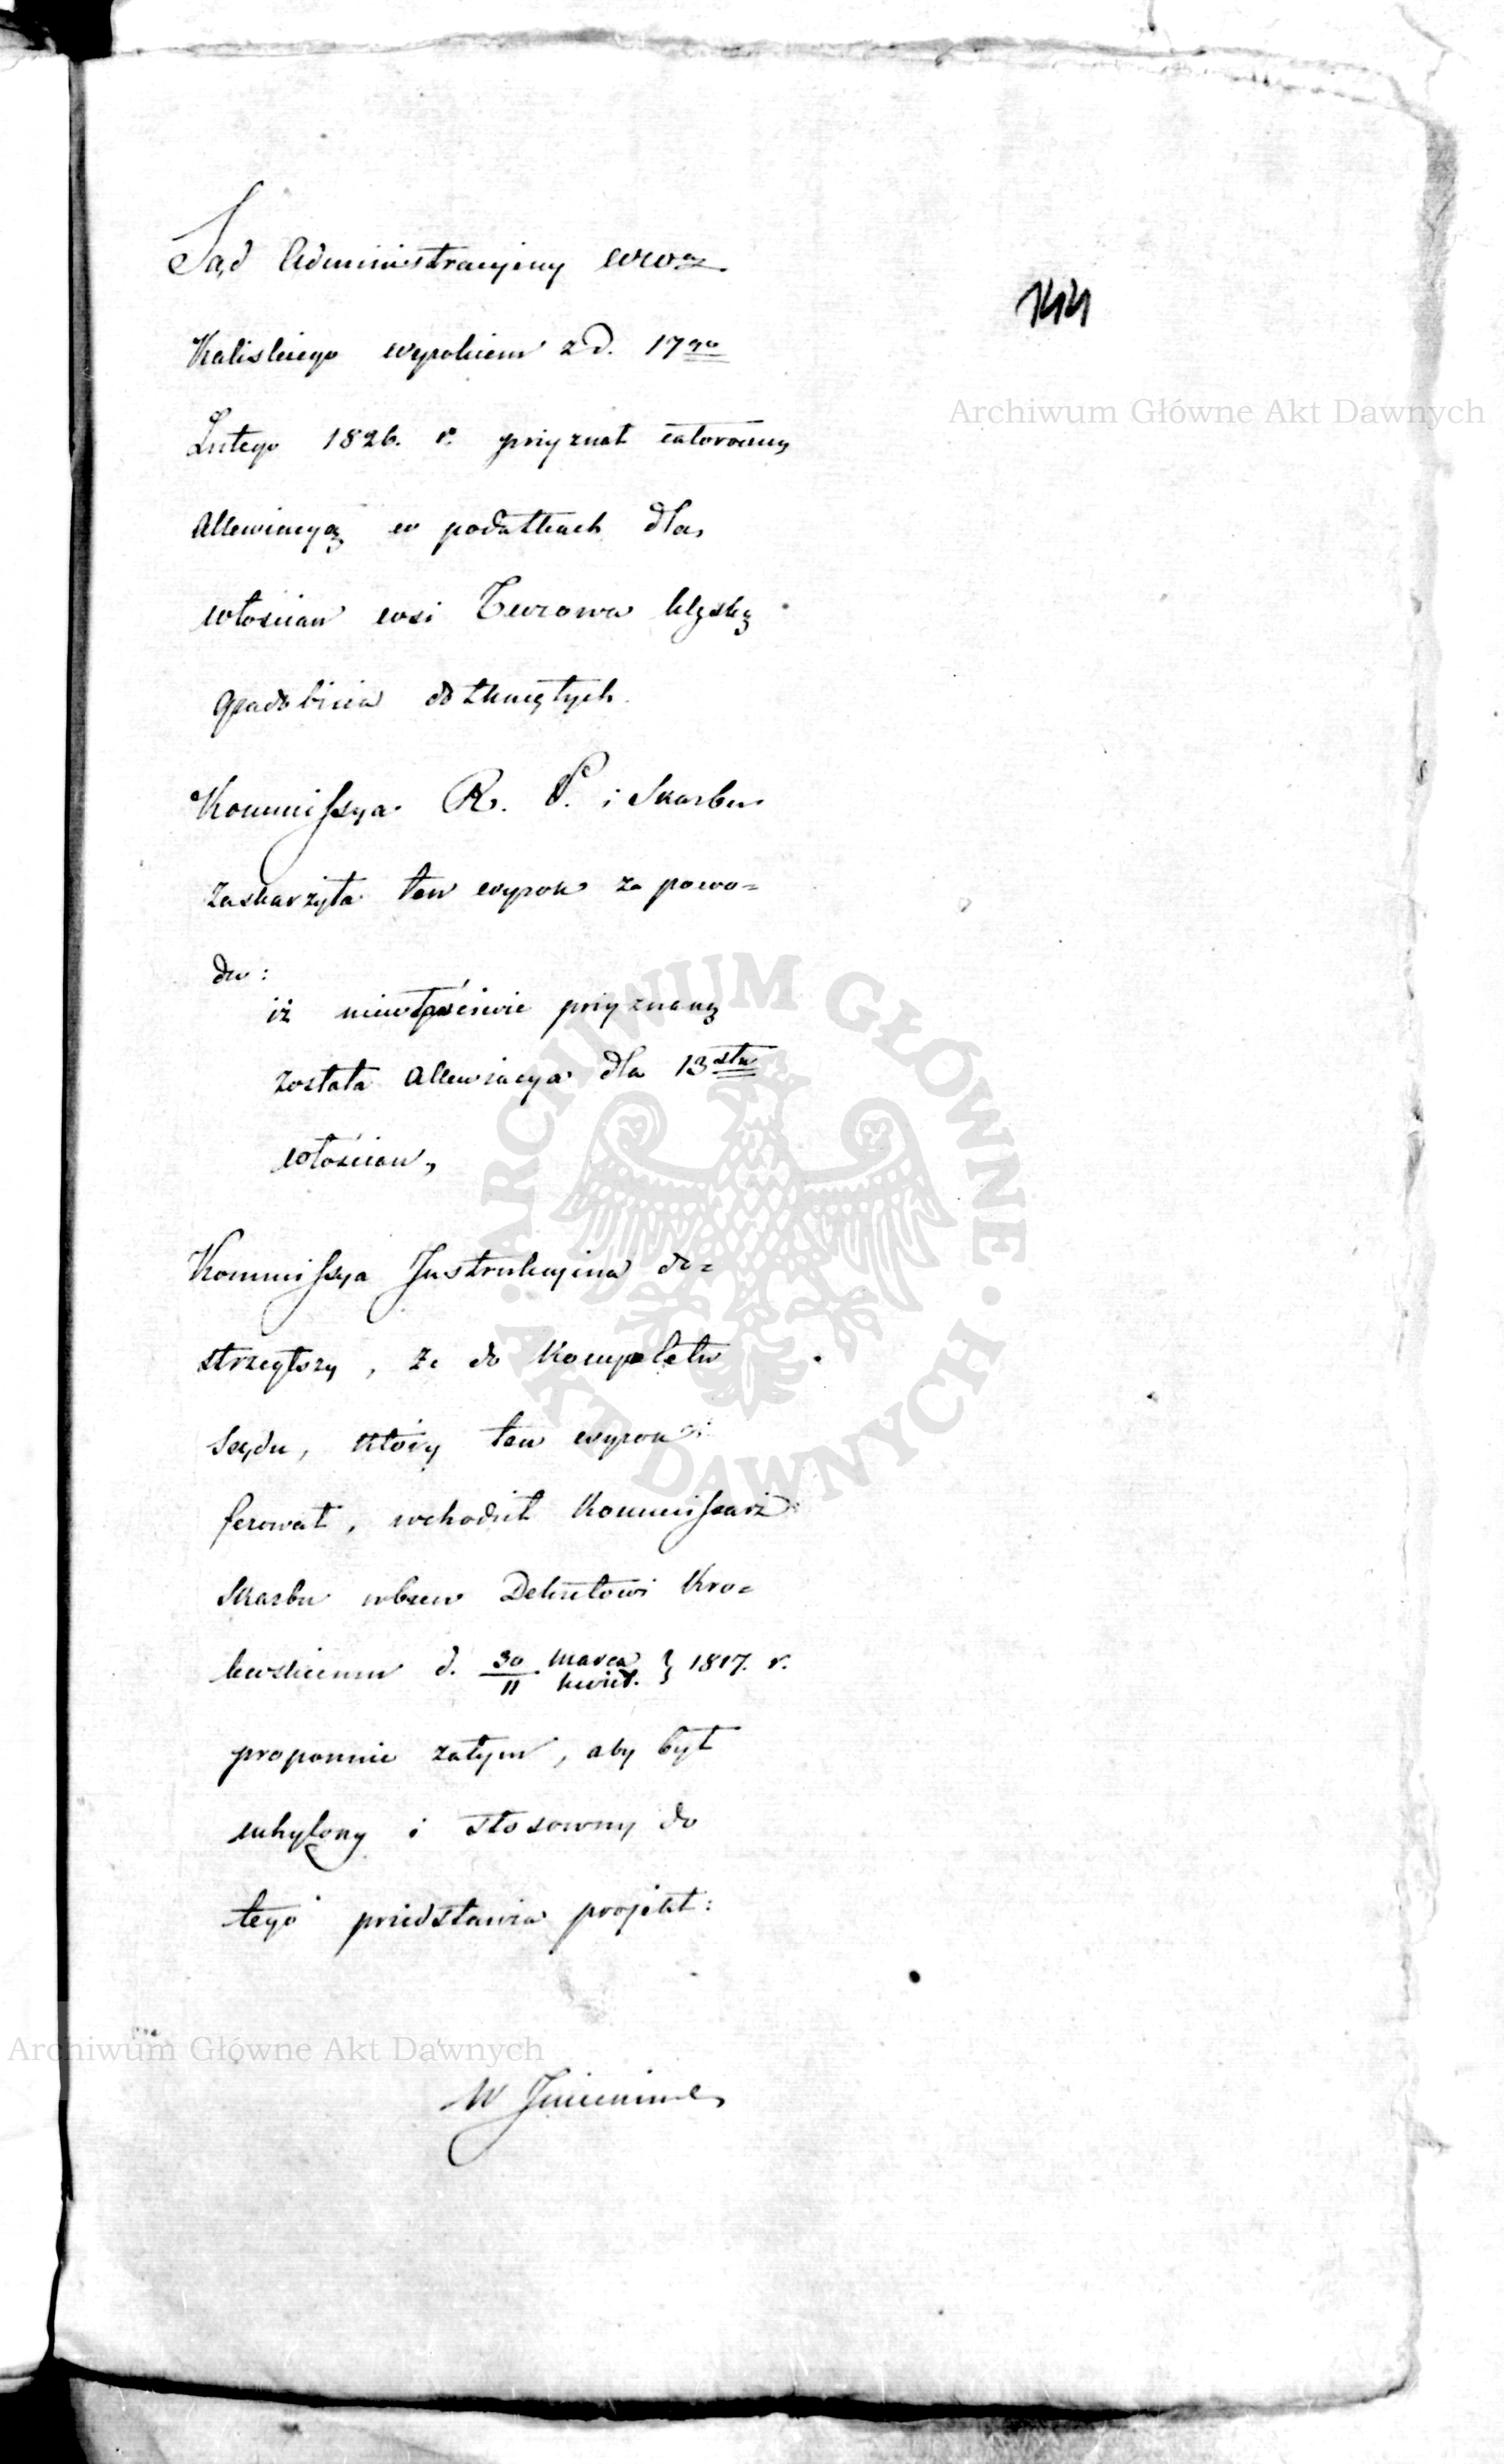 Sąd Administracyiny wwa
144
Kaliskiego wyrokiem z d. 17go
Archiwum Główne Akt Dawnych
Lutego 1826. r. przyznał całoroczną
Allewiacyą w podatkach dla
włościan wsi Turowa klęską
gradobicia dotkniętych.
Kommissya R. P. i Skarbu
zaskarżyła ten wyrok za powo=
du:
iż niewłaściwie przyznaną
została Allewiacya dla 13stu
włościan,
Kommissya Instrukcyina do=
strzegłszy, że do Kompletu
Sądu, który ten wyrok
ferował, wchodził Kommissarz
Skarbu wbrew Dekretowi Kro=
lewskiemu d. 30/11 Marca/Kwiet. } 1817. r.
proponuie zatym, aby był
uchylony i stosowny do
tego przedstawia projekt:
Archiwum Główne Akt Dawnych
W Jmieniu
ARCHIWUM GŁÓWNE · AKT DAWNYCH ·